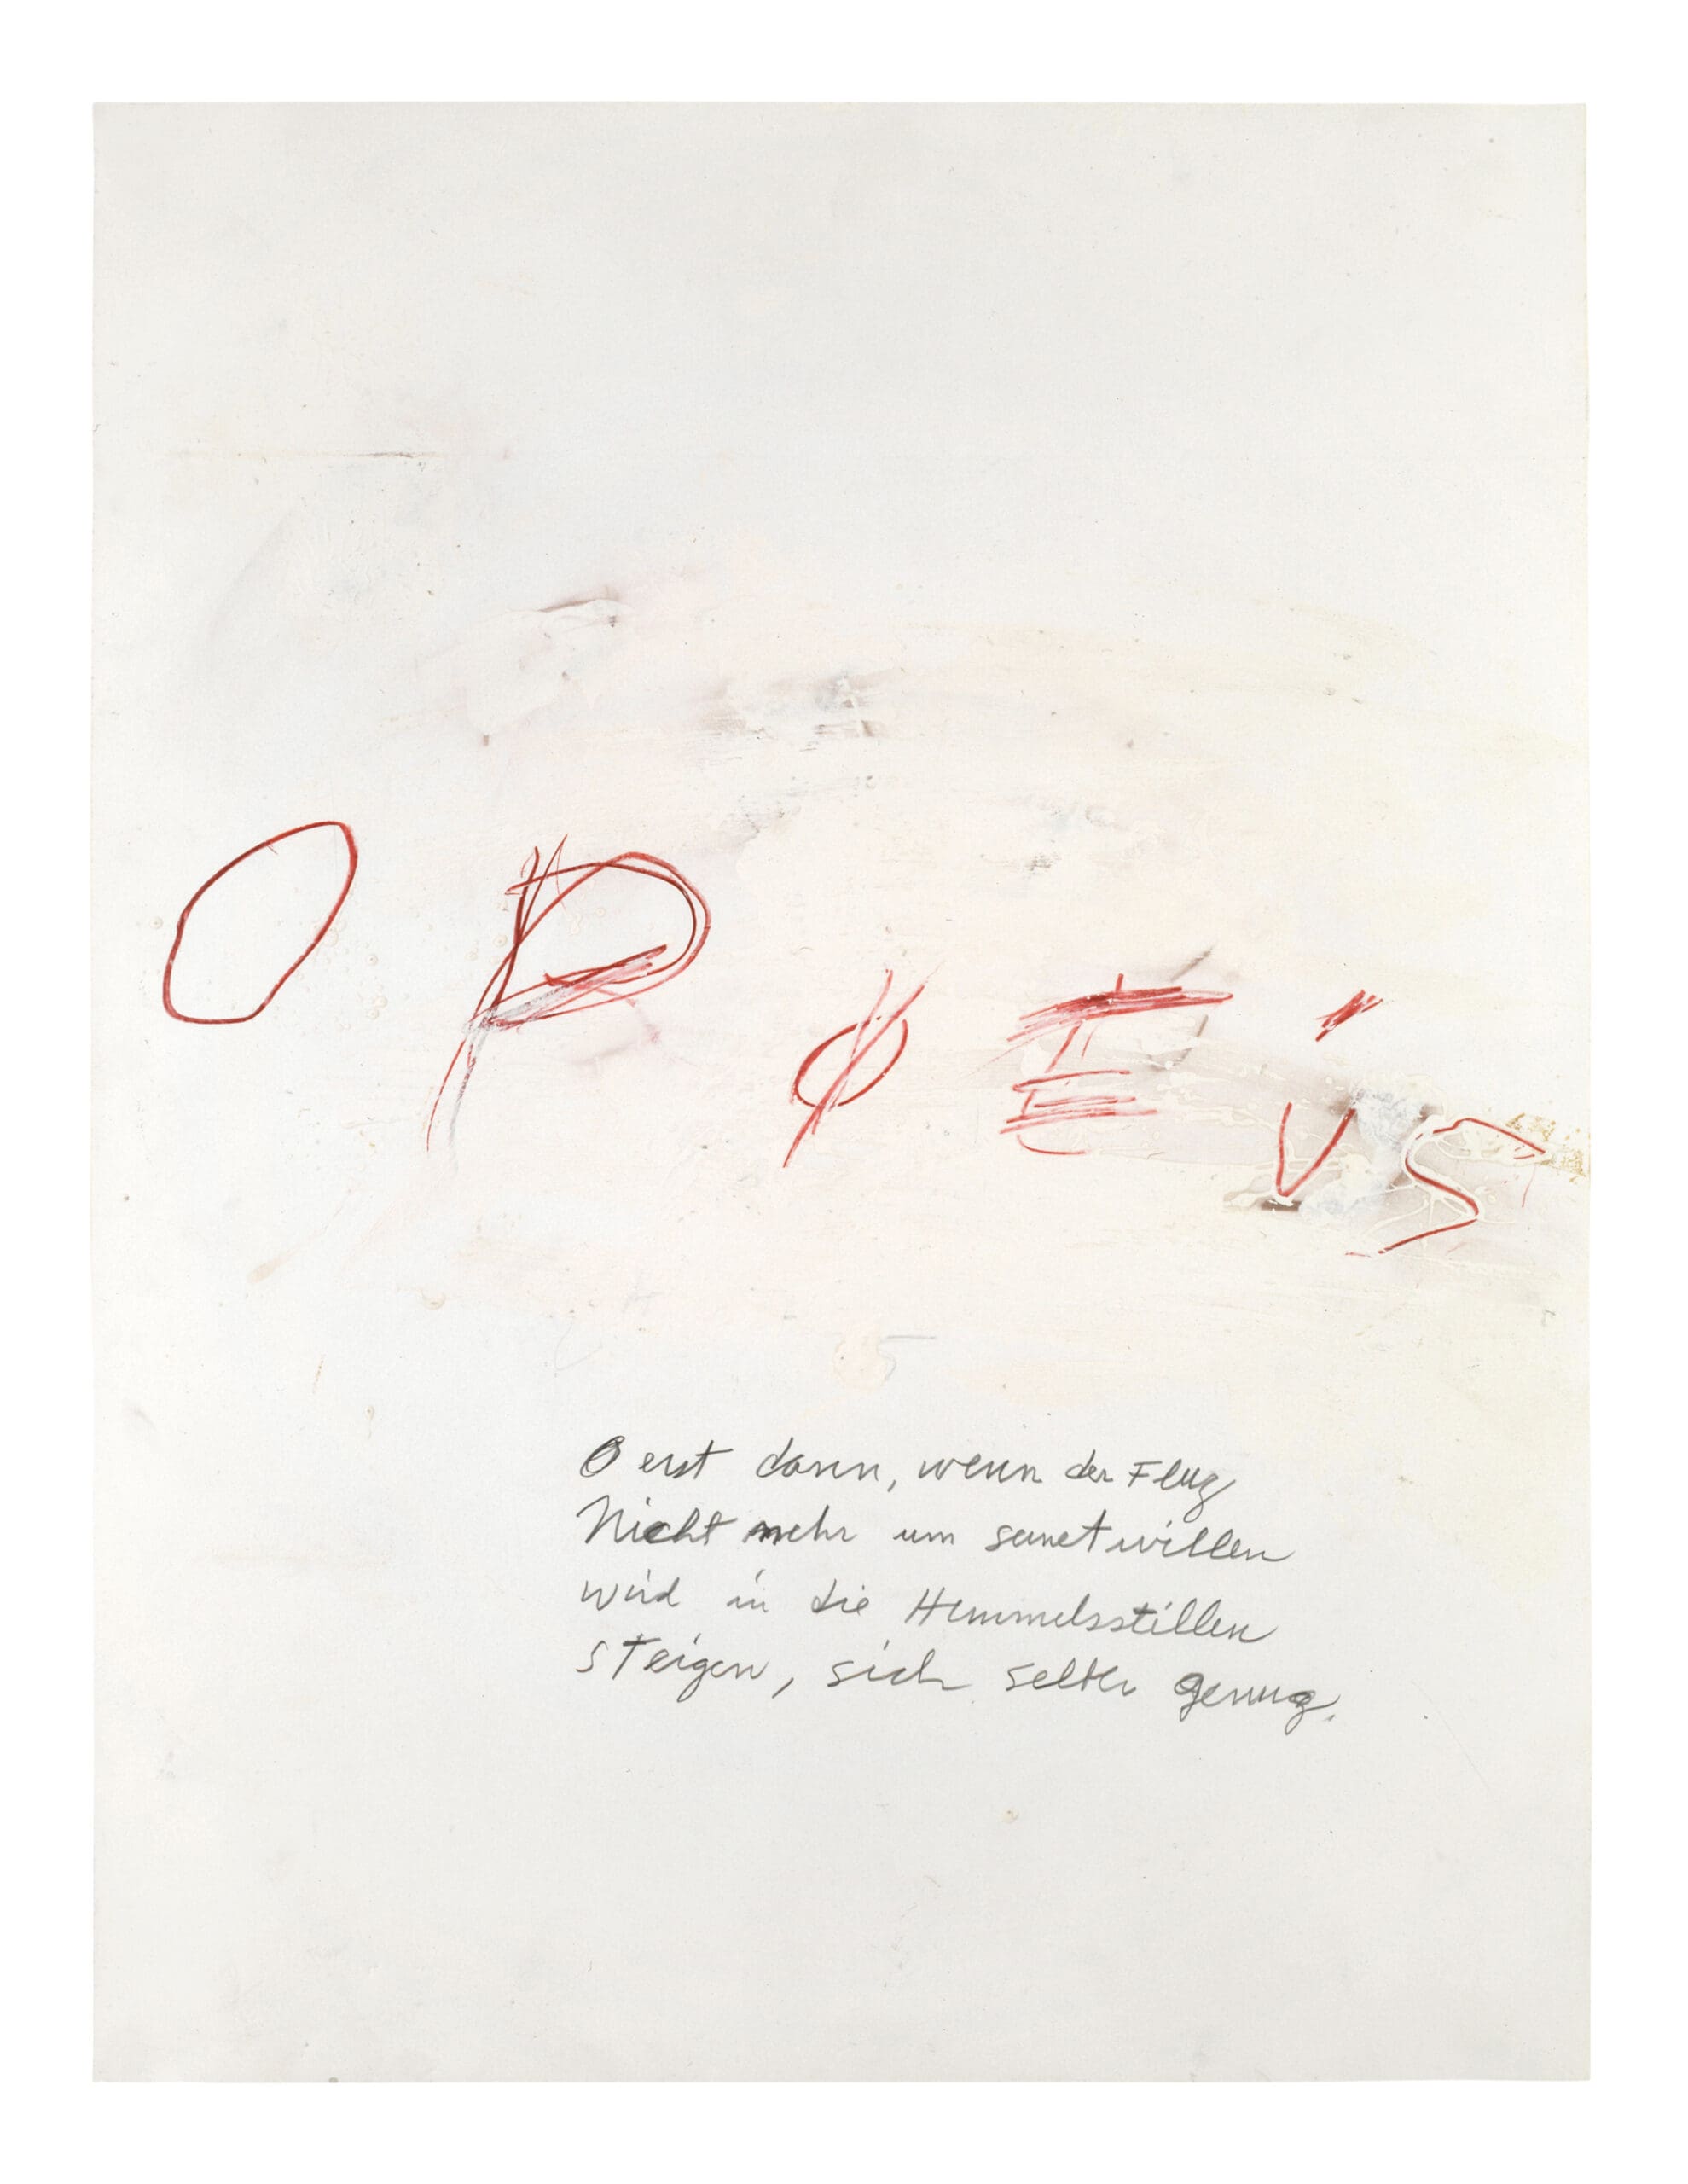 ΟΡΦΕΥΣ
O erst dann, wenn der Flug
Nicht mehr um seinetwillen
wird in die Himmelsstillen
steigen, sich selber genug.